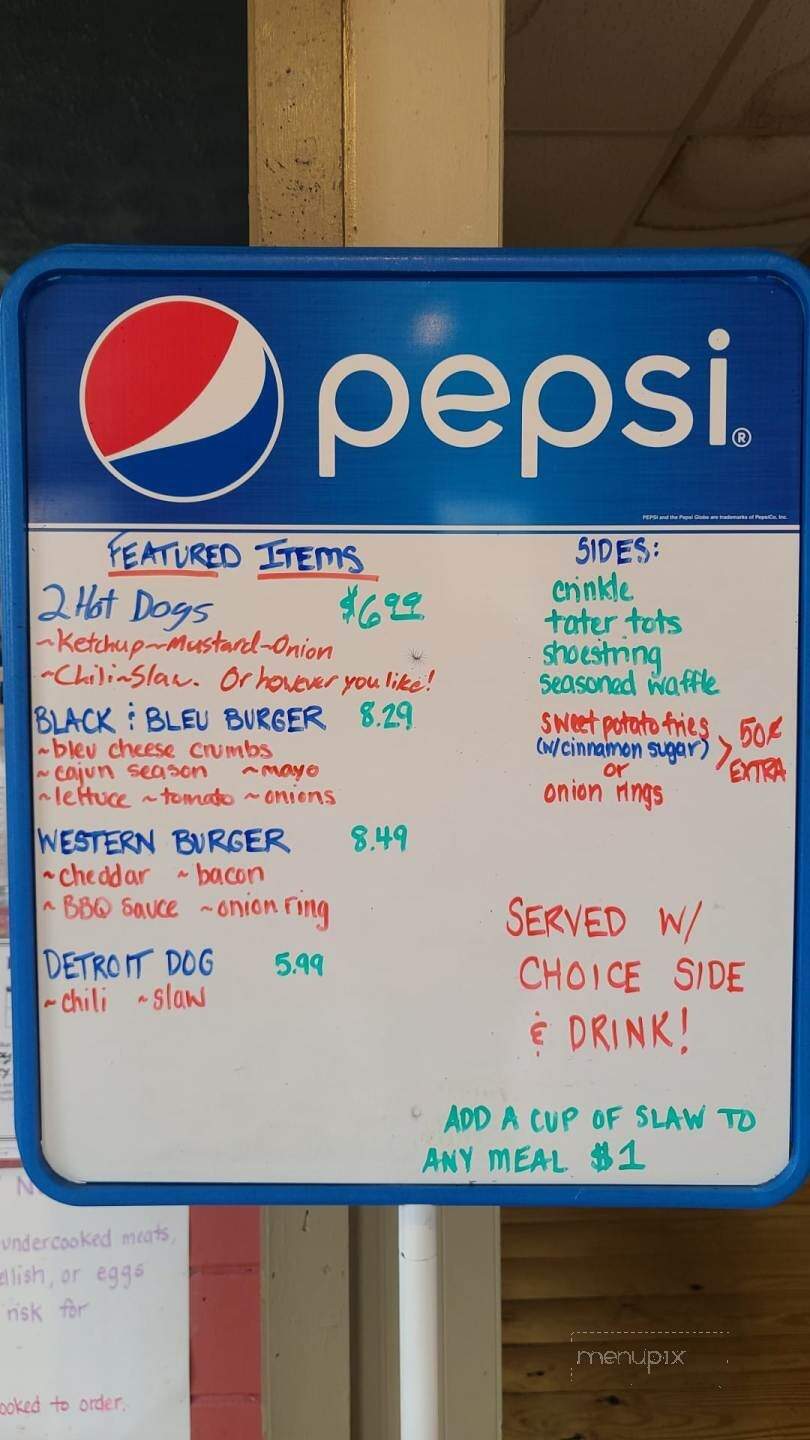 pepsi®
PEPSI and the Pepsi Globe are trademarks of PepsiCo, Inc.
FEATURED ITEMS
2 Hot Dogs $6.99
~Ketchup~Mustard~Onion
~Chili~Slaw. Or however you like!
BLACK & BLEU BURGER 8.29
~bleu cheese crumbs
~cajun season ~mayo
~lettuce ~tomato ~onions
WESTERN BURGER 8.49
~cheddar ~bacon
~BBQ Sauce ~onion ring
DETROIT DOG 5.99
~chili ~slaw
SIDES:
crinkle
tater tots
shoestring
seasoned waffle
sweet potato fries
(w/cinnamon sugar) > 50¢ EXTRA
or
onion rings
SERVED W/
CHOICE SIDE
& DRINK!
ADD A CUP OF SLAW TO
ANY MEAL $1
undercooked meats,
ellish, or eggs
risk for
ooked to order.
menupix